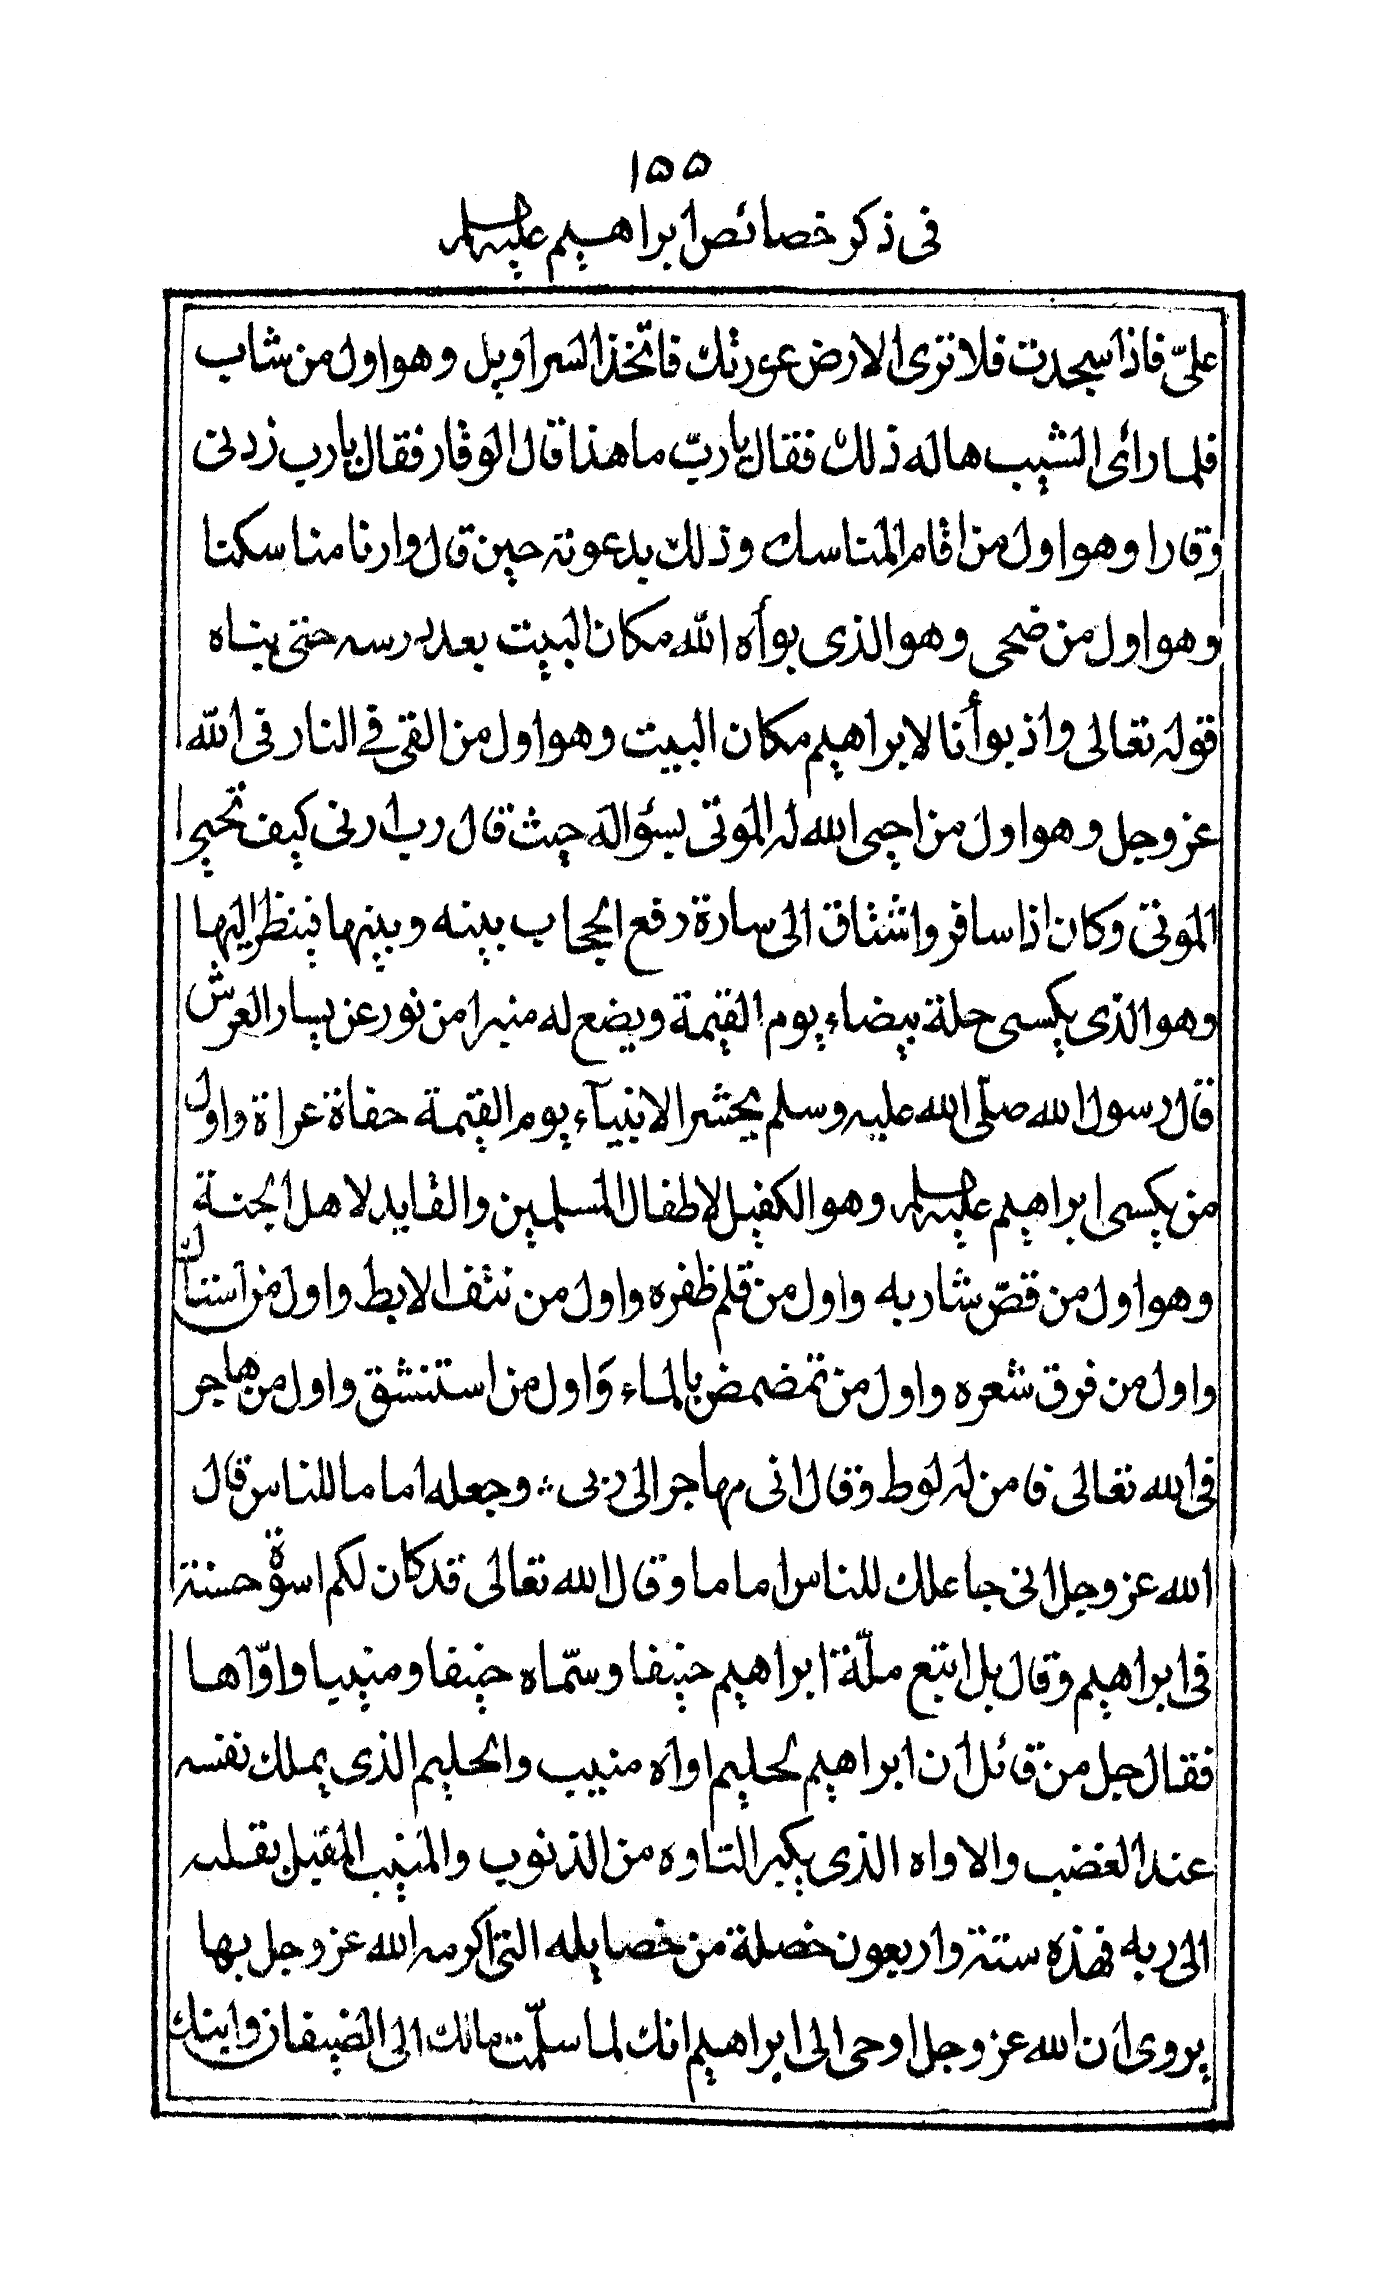 ١٥٥
فى ذكر خصائص ابراهيم عليه السلام
علىّ فاذا سجدت فلا ترى الارض عورتك فاتّخذ السراويل وهو اول من شاب
فلما رأى الشيب هاله ذلك فقال يا ربّ ما هذا قال الوقار فقال يا رب زدنى
وقارا وهو اول من اقام المناسك وذلك بدعوته حين قال وارنا مناسكنا
وهو اول من ضحى وهو الذى بوأه الله مكان البيت بعد درسه حتى بناه
قوله تعالى واذ بوأنا لابراهيم مكان البيت وهو اول من القى فى النار فى الله
عز وجل وهو اول من احيى الله له الموتى بسؤاله حيث قال رب ارنى كيف تحيى
الموتى وكان اذا سافر واشتاق الى سارة رفع الحجاب بينه وبينها فينظر اليها
وهو الذى يكسى حلة بيضاء يوم القيمة ويضع له منبرا من نور عن يسار العرش
قال رسول الله صلّى الله عليه وسلم يحشر الانبيآء يوم القيمة حفاة عراة واول
من يكسى ابراهيم عليه السلام وهو الكفيل لاطفال المسلمين والقايد لاهل الجنة
وهو اول من قصّ شاربه واول من قلم ظفره واول من نتف الابط واول من استاك
واول من فرق شعره واول من تمضمض بالماء واول من استنشق واول من هاجر
فى الله تعالى فامن له لوط وقال انى مهاجر الى ربى ؞ وجعله اماما للناس قال
الله عز وجل انى جاعلك للناس اماما وقال الله تعالى قد كان لكم اسوة حسنة
فى ابراهيم وقال بل اتبع ملّة ابراهيم حنيفا وسمّاه حنيفا ومنيبا واوّاها
فقال جل من قائل ان ابراهيم لحليم اواه منيب والحليم الذى يملك نفسه
عند الغضب والاواه الذى يكثر التاوه من الذنوب والمنيب المقبل بقلبه
الى ربه فهذه ستة واربعون خصلة من خصايله التى اكرمه الله عز وجل بها
يروى ان الله عز وجل اوحى الى ابراهيم انك لما سلّمت مالك الى الضيفان وابنك